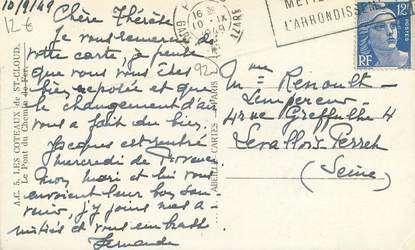 10/9/49
12 €
Chère Thérèse
Je vous remercie de
votre carte, je pense
que vous vous êtes
bien reposée et que
le changement d'air
vous a fait du bien.
Jacques est rentré
mercredi de
mon mari et lui vous
envoient leur bon sou-
venir, j'y joins mes a-
mitiés et vous embrasse
Fernande
A.C. 5. LES COTEAUX de ST-CLOUD.
Le Pont du Chemin de Fer.
ABEILLE CARTES
PARIS
92
16
IX
1949
L'ARRONDISS
12F
RF
POSTES
Mme Renoult-
Lempereur
rue Greffulhe
Levallois-Perret
(Seine)